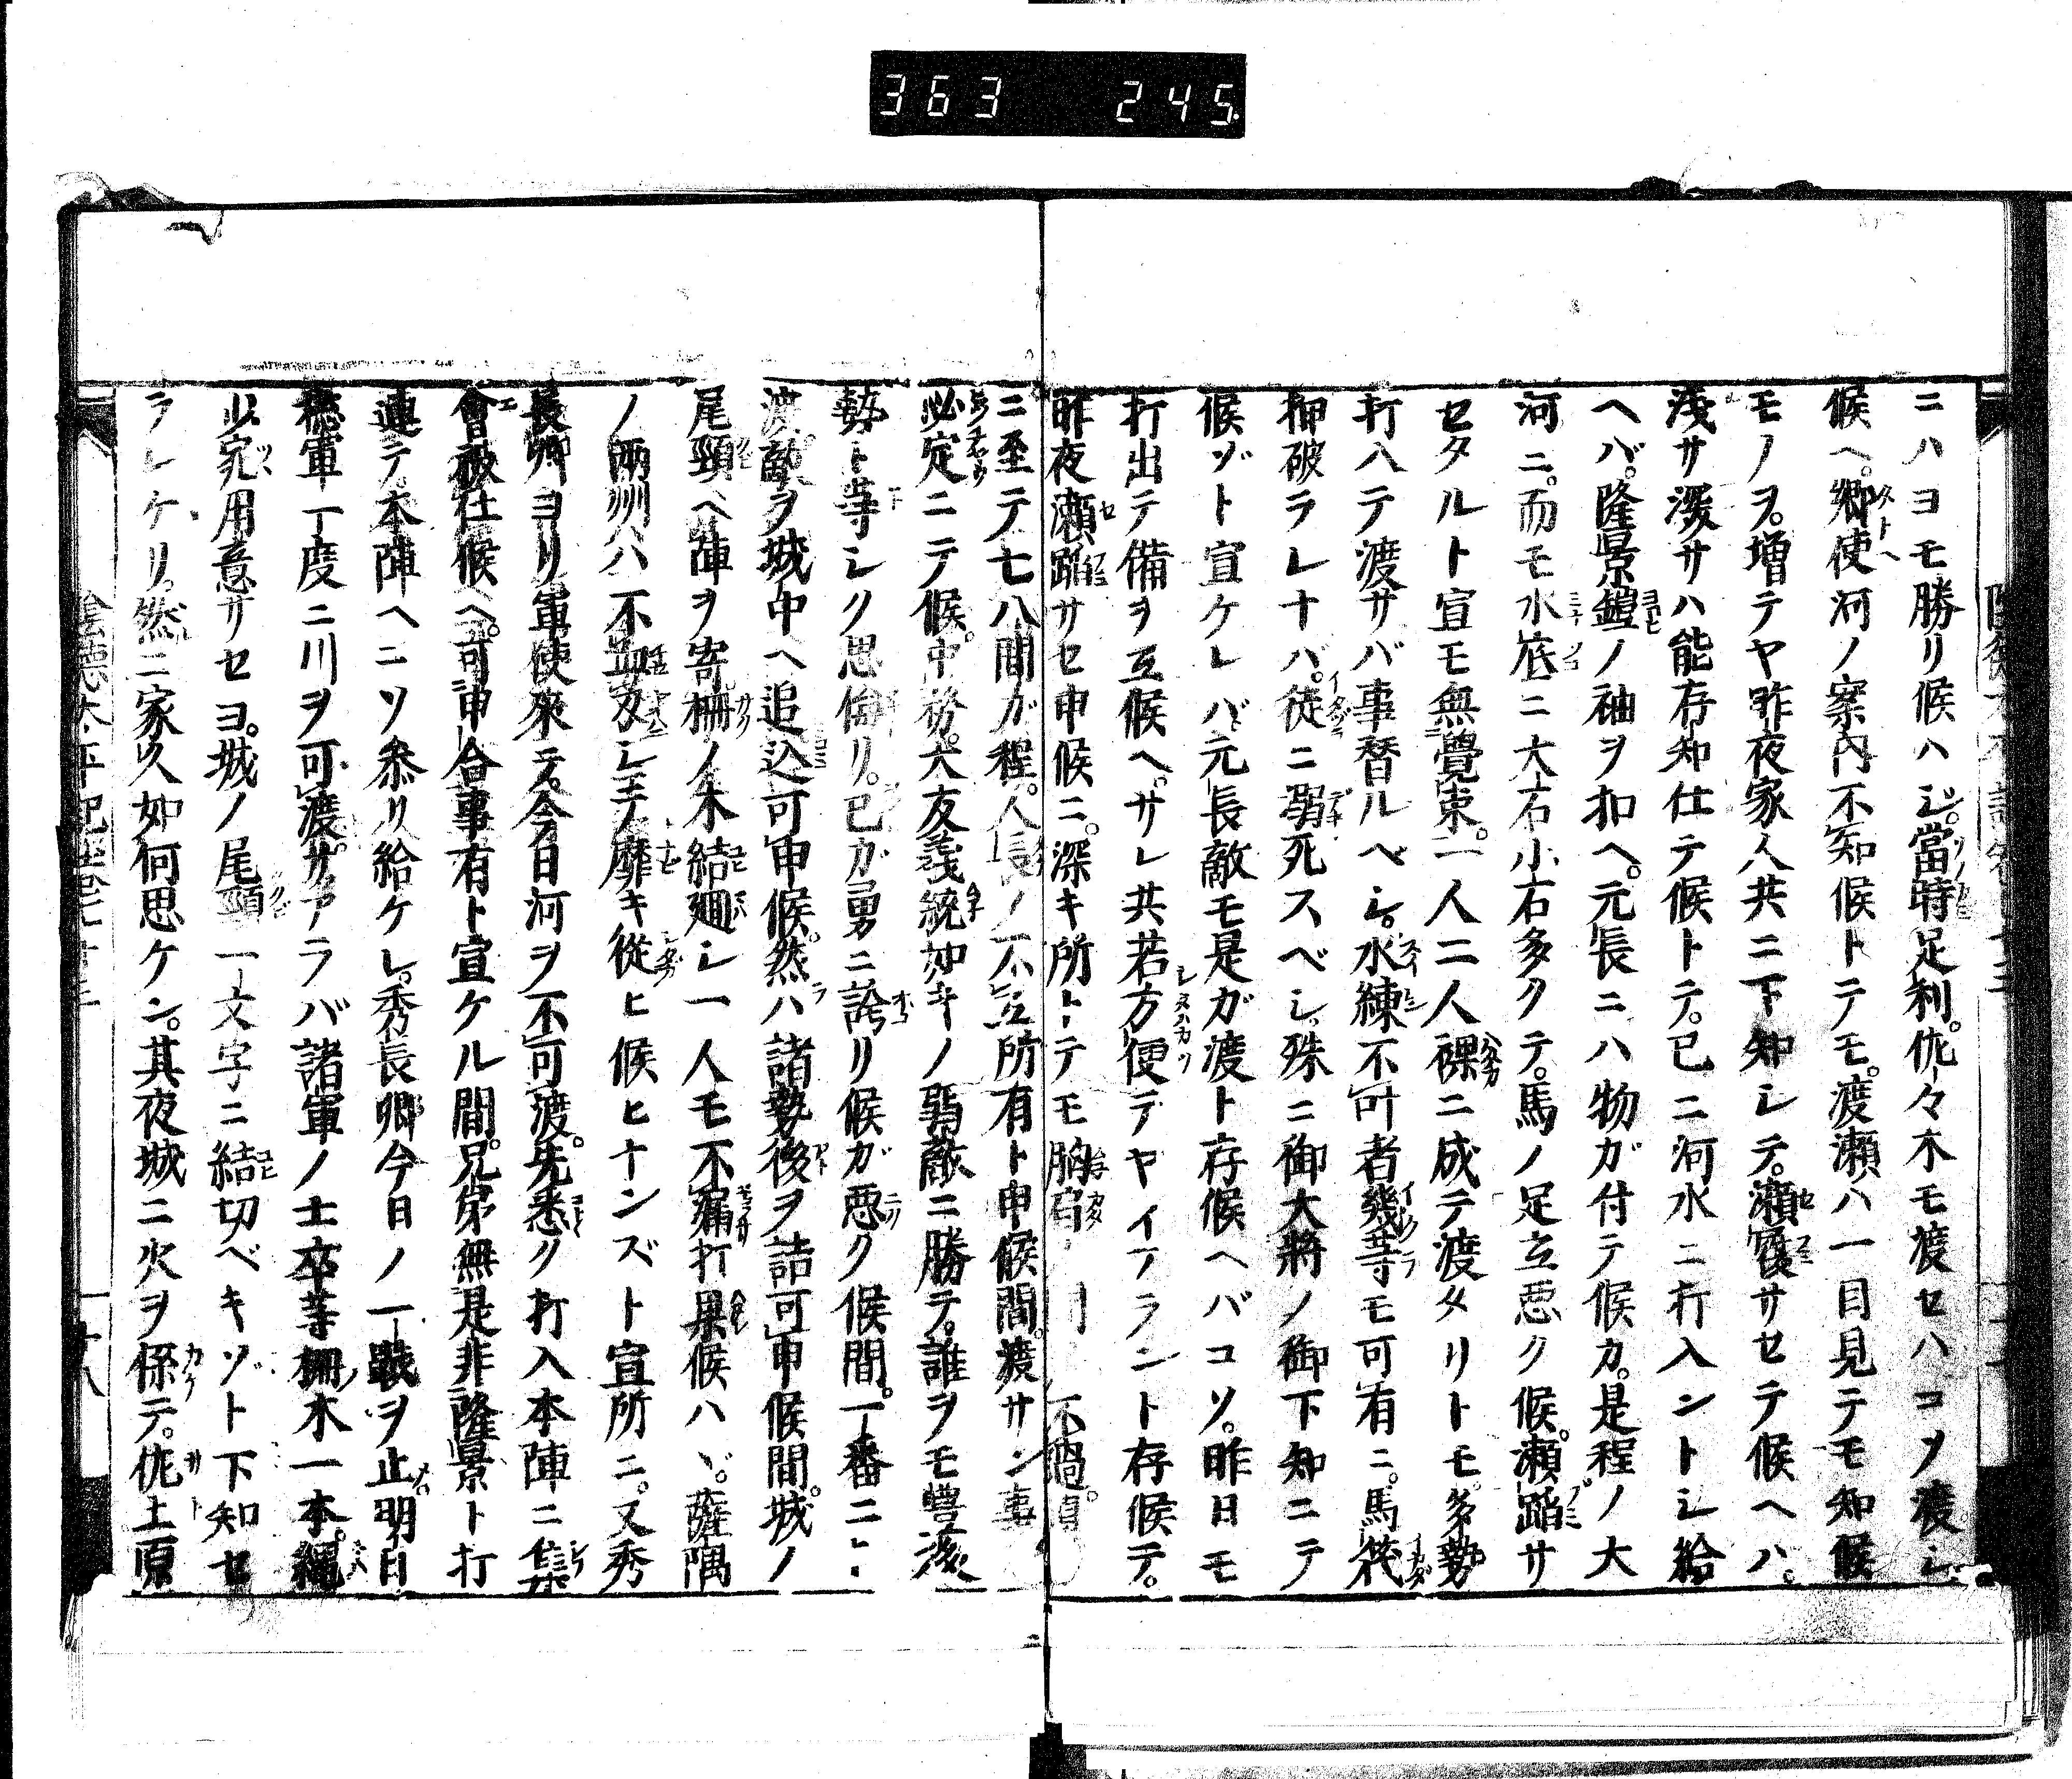 363 245
ニハヨモ勝リ候ハジ。當時足利。佐々木モ渡セハコソ渡シ
候ヘ。郷使河ノ案内不知候トテモ。渡瀬ハ一目見テモ知候
モノヲ。増テヤ昨夜家人共ニ下知シテ。瀬踏サセテ候ヘハ。
浅サ深サハ能存知仕テ候トテ。已ニ河水ニ打入ントシ給
ヘバ。隆景鎧ノ袖ヲ扣ヘ。元長ニハ物ガ付テ候カ。是程ノ大
河ニ。而モ水底ニ大石小石多クテ。馬ノ足立悪ク候。瀬踏サ
セタルト宣モ無覺束。一人二人裸ニ成テ渡タリトモ。多勢
打入テ渡サバ事替ルベシ。水練不叶者幾等モ可有ニ。馬筏
押破ラレナバ。徒ニ溺死スベシ。殊ニ御大將ノ御下知ニテ
候ゾト宣ケレバ。元長敵モ是ガ渡ト存候ヘバコソ。昨日モ
打出テ備ヲ立候ヘ。サレ共若方便テヤイアラント存候テ。
昨夜瀬踏サセ申候ニ。深キ所トテモ胸肩 不過
ニ至テ七八間ガ程。人長ノ不立所有ト申候間。渡サン事
必定ニテ候。中務。大友義統如キノ弱敵ニ勝テ。誰ヲモ豊後
勢ト等シク思侮リ。已ガ勇ニ誇リ候ガ悪ク候間。一番ニ
渡。敵ヲ城中ヘ追込可申候。然ハ諸勢後ヲ詰可申候間。城ノ
尾頸ヘ陣ヲ寄柵ノ木結廻シ一人モ不漏打果候ハヾ。薩隅
ノ兩州ハ不血刃シテ靡キ從ヒ候ヒナンズト宣所ニ。又秀
長卿ヨリ軍使來テ。今日河ヲ不可渡。先悉ク打入本陣ニ集
會被仕候ヘ。可申合事有ト宣ケル間。兄弟無是非隆景ト打
連テ。本陣ヘニソ參リ給ケレ。秀長卿今日ノ一戰ヲ止。明日
惣軍一度ニ川ヲ可渡。サアラバ諸軍ノ士卒等柵木一本。繩
少宛用意サセヨ。城ノ尾頸一文字ニ結切ベキゾト下知セ
ラレケリ。然ニ家久如何思ケン。其夜城ニ火ヲ係テ。佐土原
陰德太平記卷七十三
十八